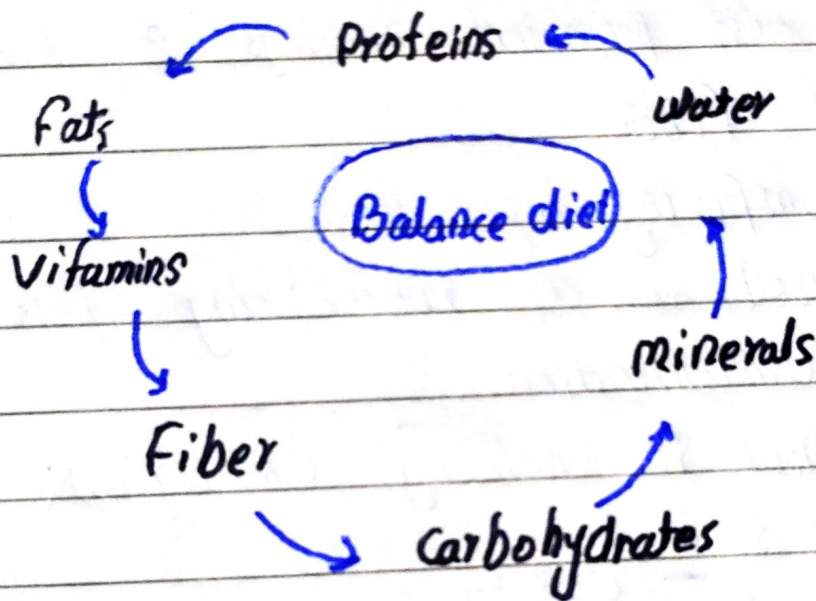 Proteins
Water
Fats
Balance diet
Vitamins
minerals
Fiber
Carbohydrates